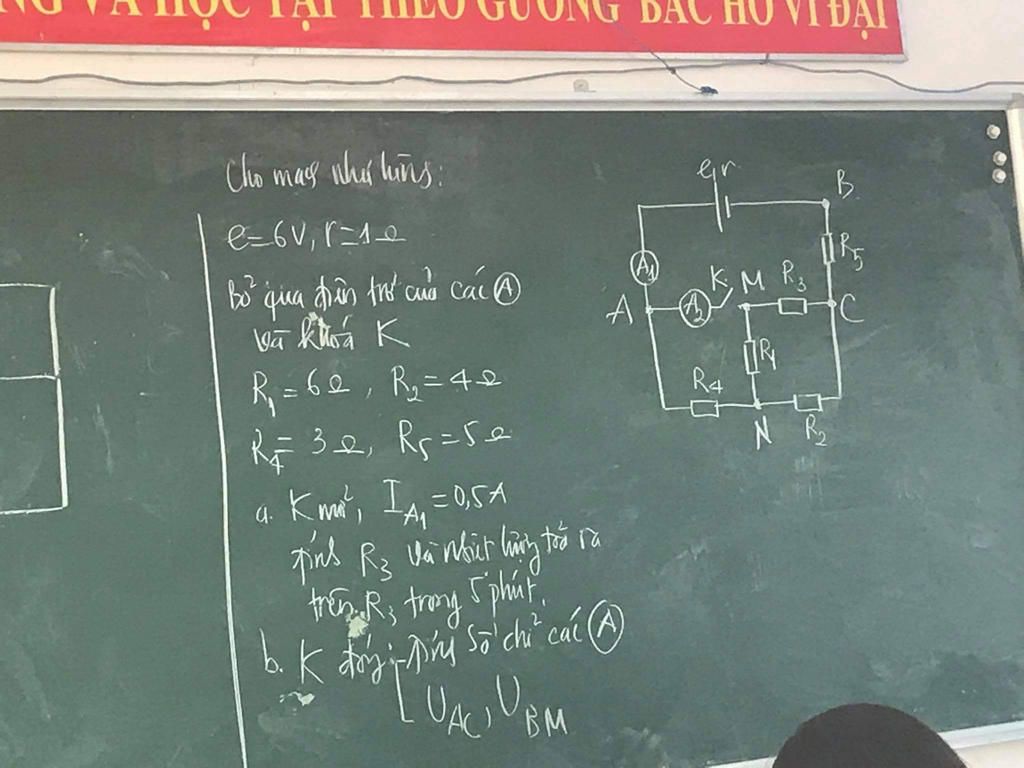 NG VÀ HỌC TẬP THEO GƯƠNG BÁC HỒ VĨ ĐẠI
Cho mạch như hình:
e=6V, r=1Ω
Bỏ qua điện trở của các Ⓐ
và khoá K
R₁=6Ω, R₂=4Ω
R₄=3Ω, R₅=5Ω
a. K mở, I_A₁=0,5A
tính R₃ và nhiệt lượng toả ra
trên R₃ trong 5 phút.
b. K đóng: -Tính số chỉ các Ⓐ
U_AC, U_BM
e,r
B
A₁
R₅
K
M
R₃
A
A₂
C
R₁
R₄
N
R₂